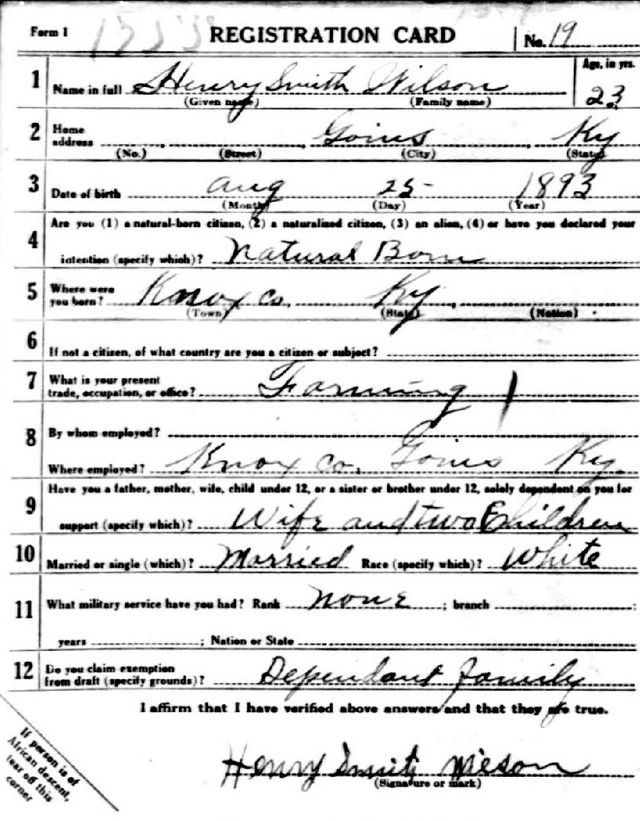 Form 1 REGISTRATION CARD No. 19
1 Name in full Henry Smith Wilson Age, in yrs. 23
(Given name) (Family name)
2 Home address Goins Ky
(No.) (Street) (City) (State)
3 Date of birth Aug 25 1893
(Month) (Day) (Year)
4 Are you (1) a natural-born citizen, (2) a naturalized citizen, (3) an alien, (4) or have you declared your
intention (specify which)? Natural Born
5 Where were you born? Knox Co. Ky
(Town) (State) (Nation)
6 If not a citizen, of what country are you a citizen or subject?
7 What is your present trade, occupation, or office? Farming
8 By whom employed?
Where employed? Knox Co. Goins Ky.
9 Have you a father, mother, wife, child under 12, or a sister or brother under 12, solely dependent on you for
support (specify which)? Wife and two Children
10 Married or single (which)? Married Race (specify which)? White
11 What military service have you had? Rank none ; branch
years ; Nation or State
12 Do you claim exemption from draft (specify grounds)? Dependant family
I affirm that I have verified above answers and that they are true.
If person is of African descent, tear off this corner
Henry Smith Wilson
(Signature or mark)